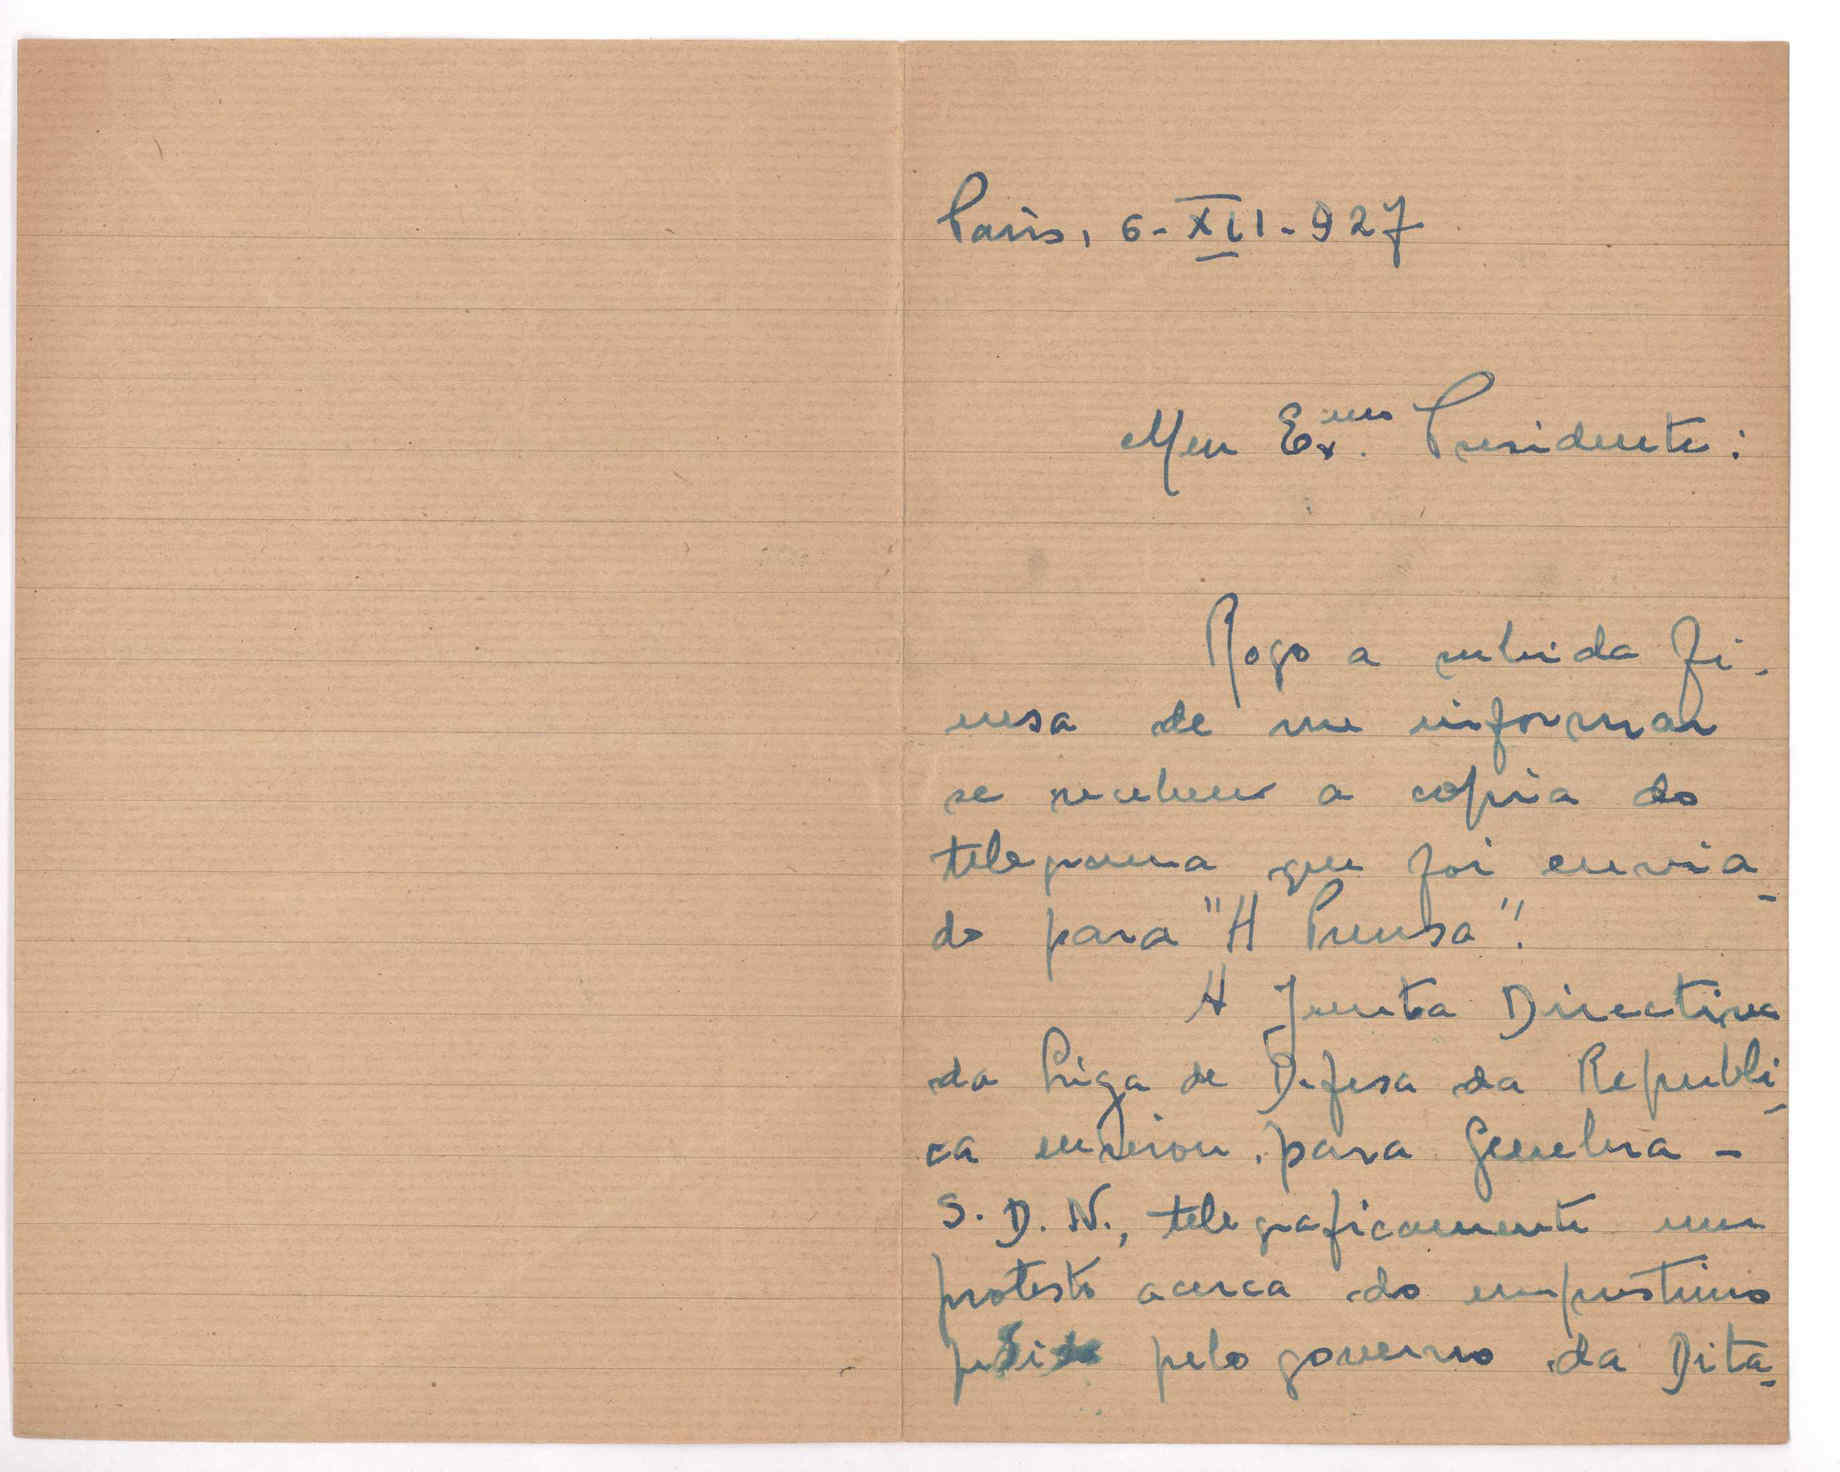 Paris, 6-XII-927
Meu Exmo. Presidente:
Rogo a subida fi-
nesa de me informar
se recebeu a copia do
telegrama que foi envia-
do para "A Prensa".
A Junta Directiva
da Liga de Defesa da Republi-
ca enviou para Genebra -
S. D. N., telegraficamente um
protesto acerca do emprestimo
pedido pelo governo da Dita-